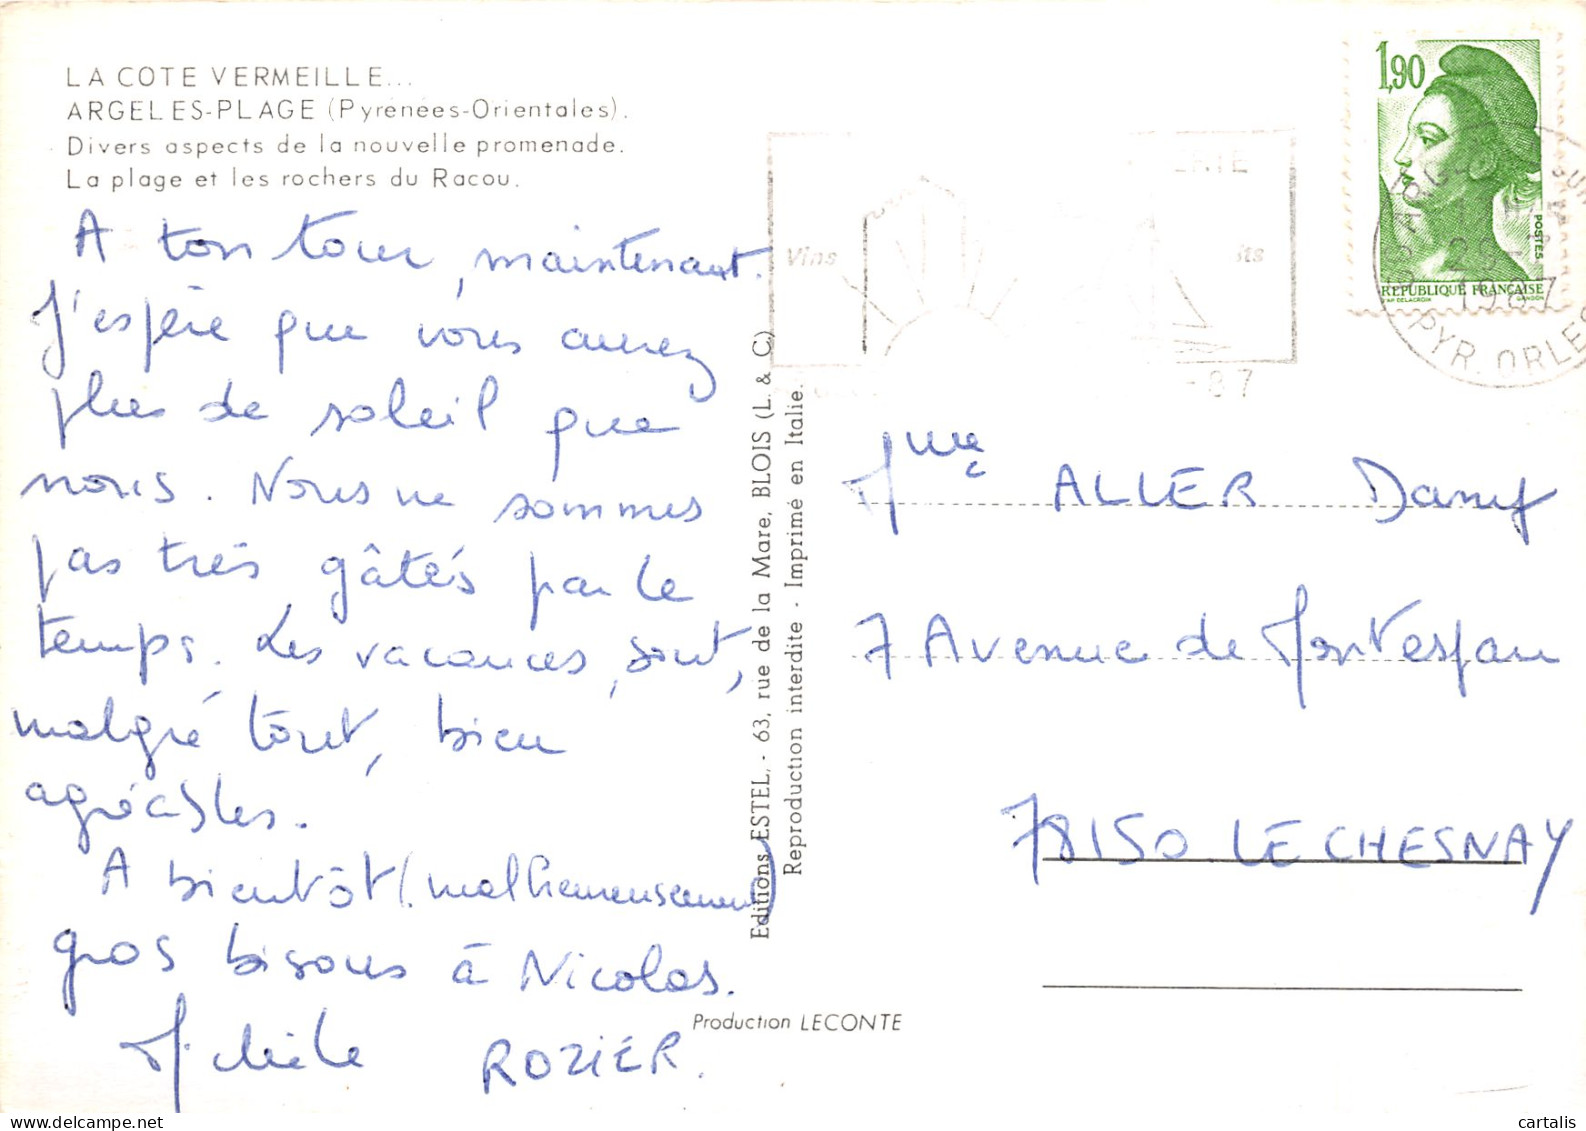 LA COTE VERMEILLE...
ARGELES-PLAGE (Pyrénées-Orientales).
Divers aspects de la nouvelle promenade.
La plage et les rochers du Racou.
A ton tour, maintenant.
J'espère que vous aurez
plus de soleil que
nous. Nous ne sommes
pas très gâtés par le
temps. Les vacances, sont,
malgré tout, bien
agréables.
A bientôt (malheureusement)
gros bisous à Nicolas.
ROZIER.
Editions ESTEL, - 63, rue de la Mare, BLOIS (L. & C.)
Reproduction interdite - Imprimé en Italie.
Production LECONTE
Vins
-87
1,90
POSTES
RÉPUBLIQUE FRANÇAISE
AP. DELACROIX GANDON
1987
PYR. ORLES
Mme ALLER Dany
7 Avenue de Montespan
78150 LE CHESNAY
cartalis